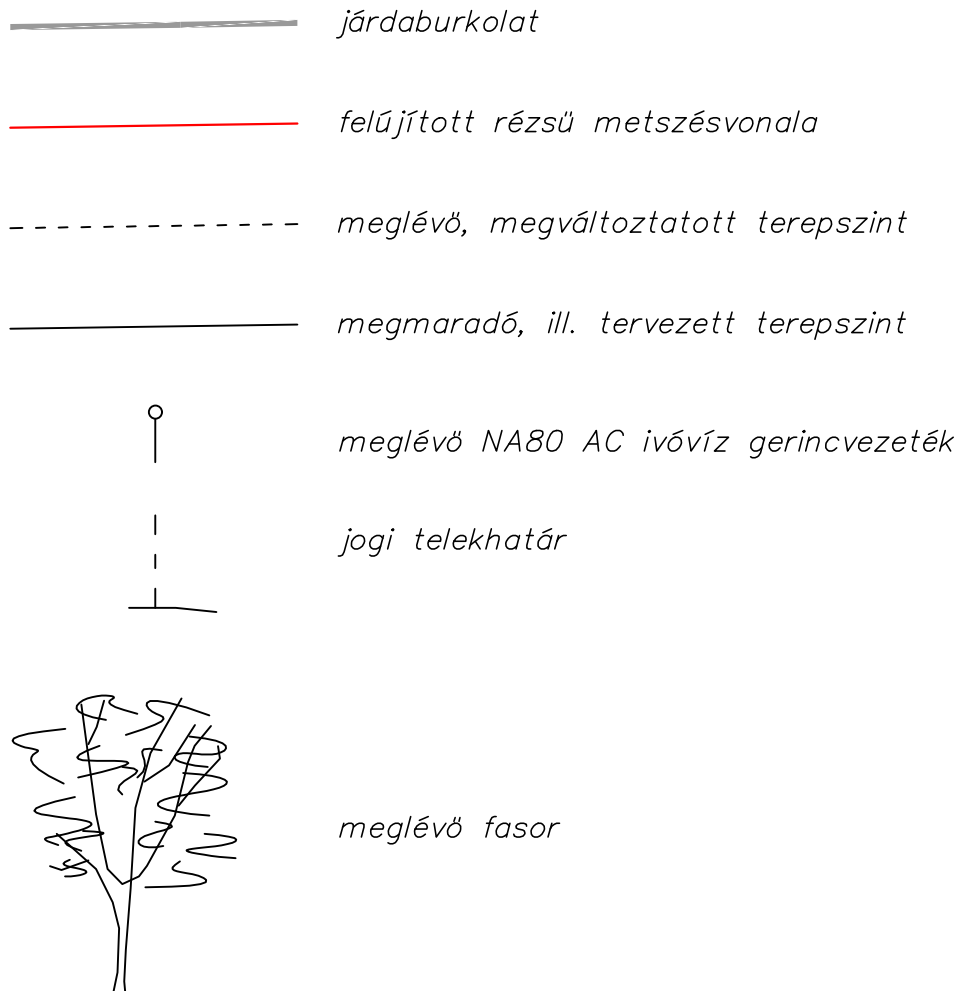 járdaburkolat
felújított rézsű metszésvonala
meglévő, megváltoztatott terepszint
megmaradó, ill. tervezett terepszint
meglévő NA80 AC ivóvíz gerincvezeték
jogi telekhatár
meglévő fasor